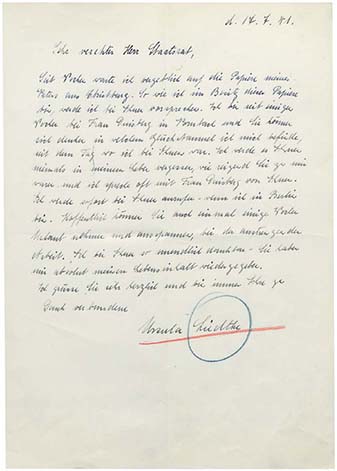 d. 14. 7. 41.
Sehr verehrter Herr Staatsrat,
Seit Wochen warte ich vergeblich auf die Papiere meines
Vaters aus Strassburg. So wie ich im Besitz dieser Papiere
bin, werde ich bei Ihnen vorsprechen. Ich bin seit einigen
Wochen bei Frau Duisberg in und Sie können
sich denken in welchem ich mich befinde,
seit dem Tag wo ich bei Ihnen war. Ich werde es Ihnen
niemals in meinem Leben vergessen, wie reizend Sie zu mir
waren und ich spreche oft mit Frau Duisberg von Ihnen.
Ich werde sofort bei Ihnen anrufen – wenn ich in Berlin
bin. Hoffentlich können Sie auch einmal einige Wochen
Urlaub nehmen und ausspannen, bei der anstrengenden
Arbeit. Ich bin Ihnen so unendlich dankbar – Sie haben
mir absolut meinen Lebensinhalt wiedergegeben.
Ich grüsse Sie sehr herzlich und bin immer Ihre zu
Dank verbundene
Ursula Liedtke